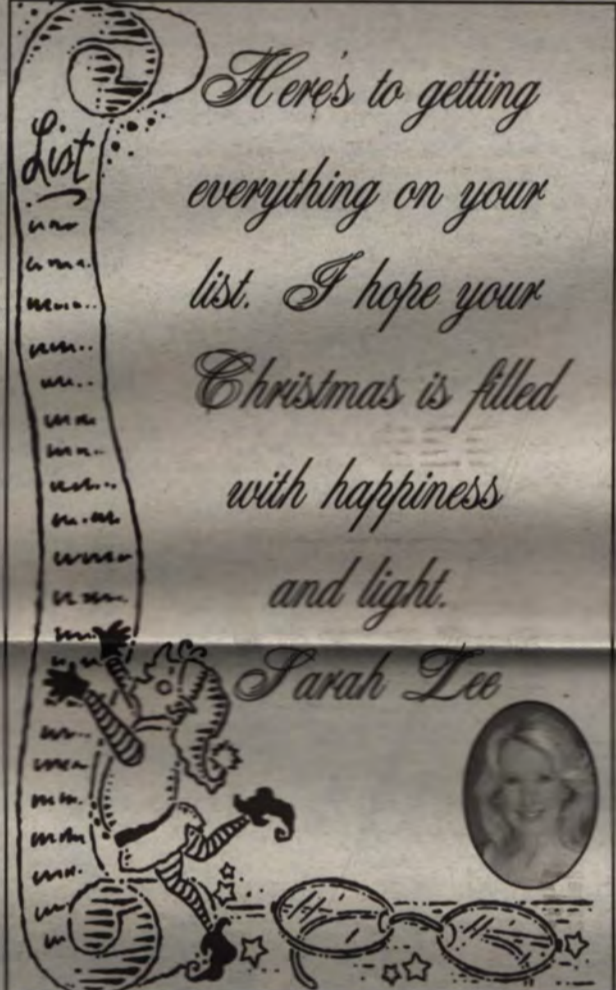 List
Here's to getting
everything on your
list. I hope your
Christmas is filled
with happiness
and light.
Sarah Lee